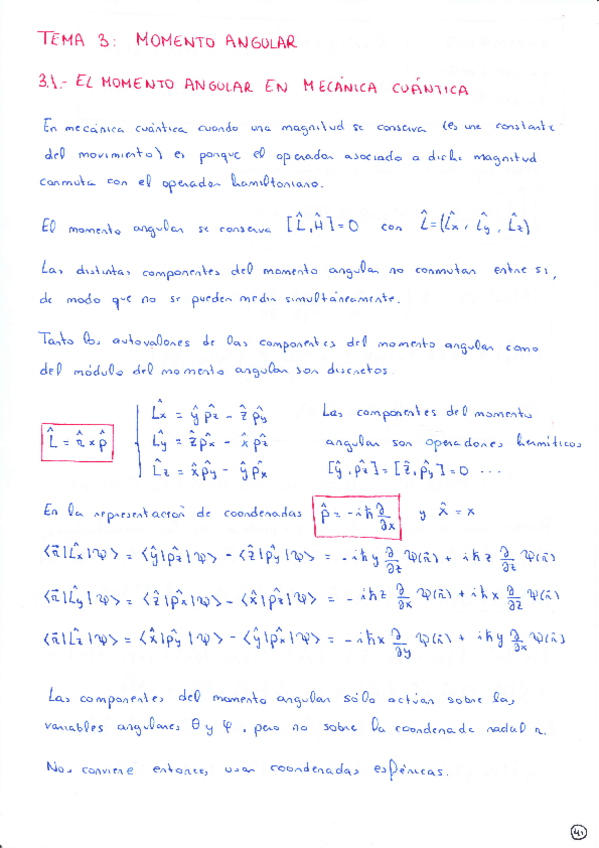 TEMA 3: MOMENTO ANGULAR
3.1.- EL MOMENTO ANGULAR EN MECÁNICA CUÁNTICA
En mecánica cuántica cuando una magnitud se conserva (es una constante
del movimiento) es porque el operador asociado a dicha magnitud
conmuta con el operador hamiltoniano.
El momento angular se conserva [L̂, Ĥ] = 0 con L̂ = (L̂x, L̂y, L̂z)
Las distintas componentes del momento angular no conmutan entre sí,
de modo que no se pueden medir simultáneamente.
Tanto los autovalores de las componentes del momento angular como
del módulo del momento angular son discretos.
L̂ = r̂ x p̂
L̂x = ŷ p̂z - ẑ p̂y
L̂y = ẑ p̂x - x̂ p̂z
L̂z = x̂ p̂y - ŷ p̂x
Las componentes del momento
angular son operadores hermíticos
[ŷ, p̂z] = [ẑ, p̂y] = 0 ...
En la representación de coordenadas p̂ = -iħ ∂/∂x y x̂ = x
⟨r⃗|L̂x|ψ⟩ = ⟨ŷ|p̂z|ψ⟩ - ⟨ẑ|p̂y|ψ⟩ = -iħy ∂/∂z ψ(r⃗) + iħz ∂/∂y ψ(r⃗)
⟨r⃗|L̂y|ψ⟩ = ⟨ẑ|p̂x|ψ⟩ - ⟨x̂|p̂z|ψ⟩ = -iħz ∂/∂x ψ(r⃗) + iħx ∂/∂z ψ(r⃗)
⟨r⃗|L̂z|ψ⟩ = ⟨x̂|p̂y|ψ⟩ - ⟨ŷ|p̂x|ψ⟩ = -iħx ∂/∂y ψ(r⃗) + iħy ∂/∂x ψ(r⃗)
Las componentes del momento angular sólo actúan sobre las
variables angulares θ y φ, pero no sobre la coordenada radial r.
Nos conviene entonces usar coordenadas esféricas.
41